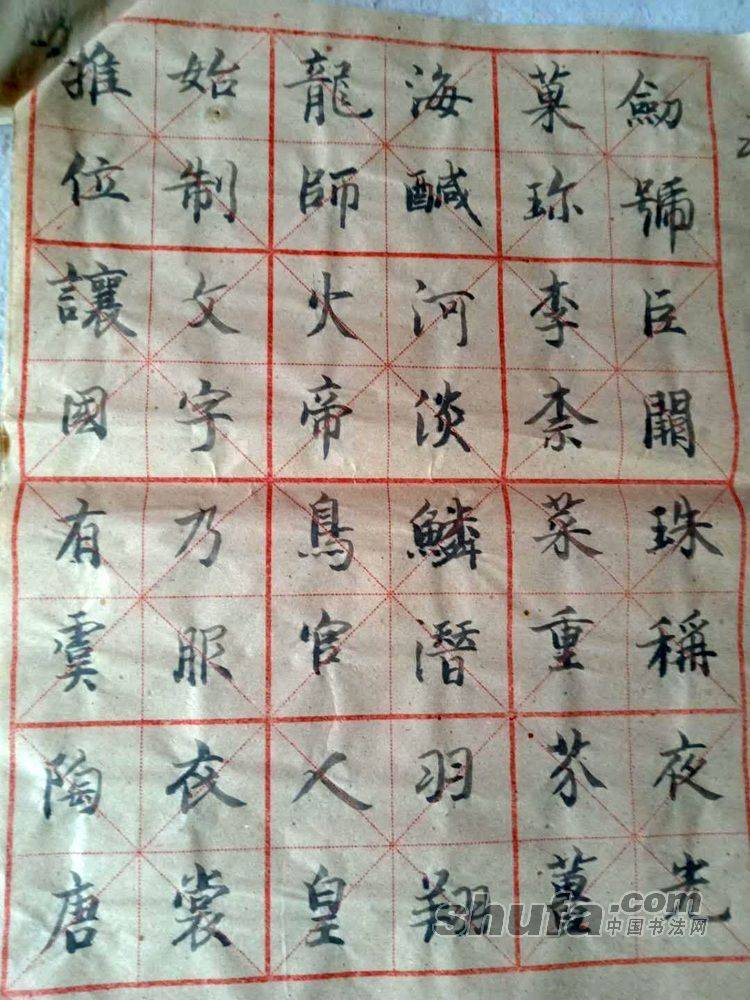 劒號臣闕珠稱夜光
菓珎李柰菜重芥薑
海醎河淡鱗潛羽翔
龍師火帝鳥官人皇
始制文字乃服衣裳
推位讓國有虞陶唐
shufa.com
中国书法网